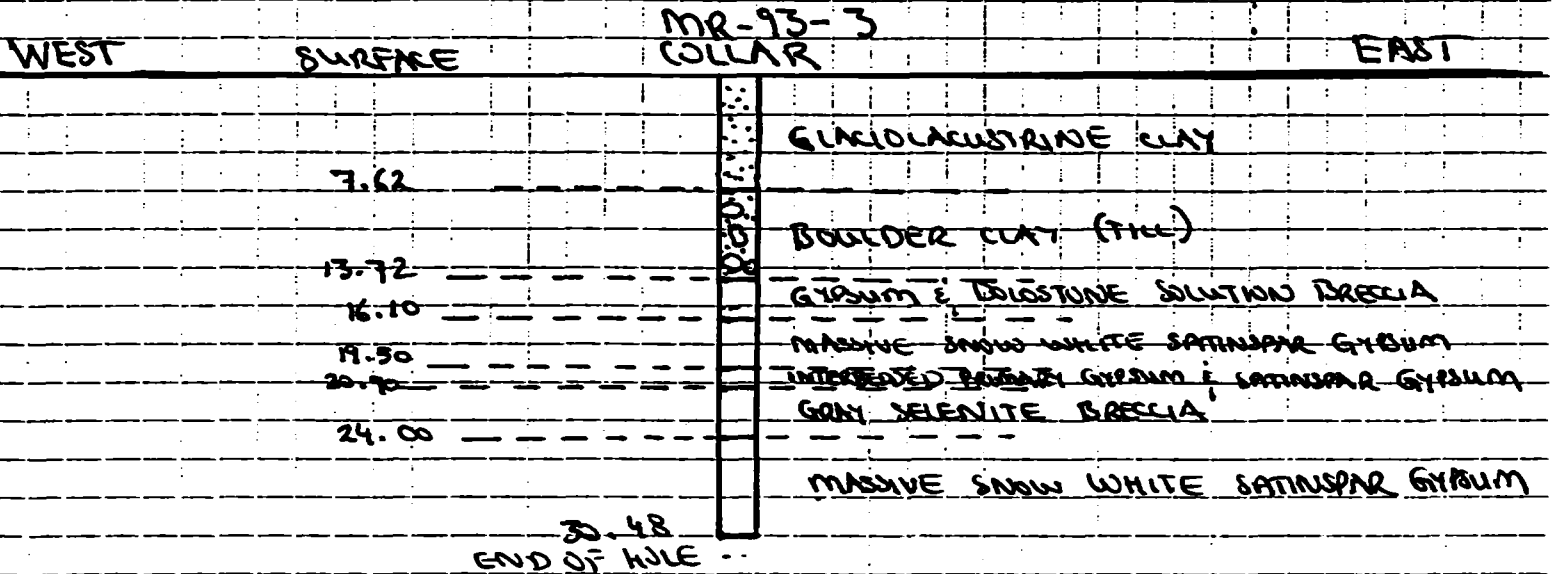 MR-93-3
WEST SURFACE COLLAR EAST
GLACIOLACUSTRINE CLAY
7.62
BOULDER CLAY (TILL)
13.72
GYPSUM & DOLOSTONE SOLUTION BRECCIA
16.10
MASSIVE SNOW WHITE SATINSPAR GYPSUM
19.50
INTERBEDDED GYPSUM & SATINSPAR GYPSUM
20.90
GRAY SELENITE BRECCIA
24.00
MASSIVE SNOW WHITE SATINSPAR GYPSUM
30.48
END OF HOLE